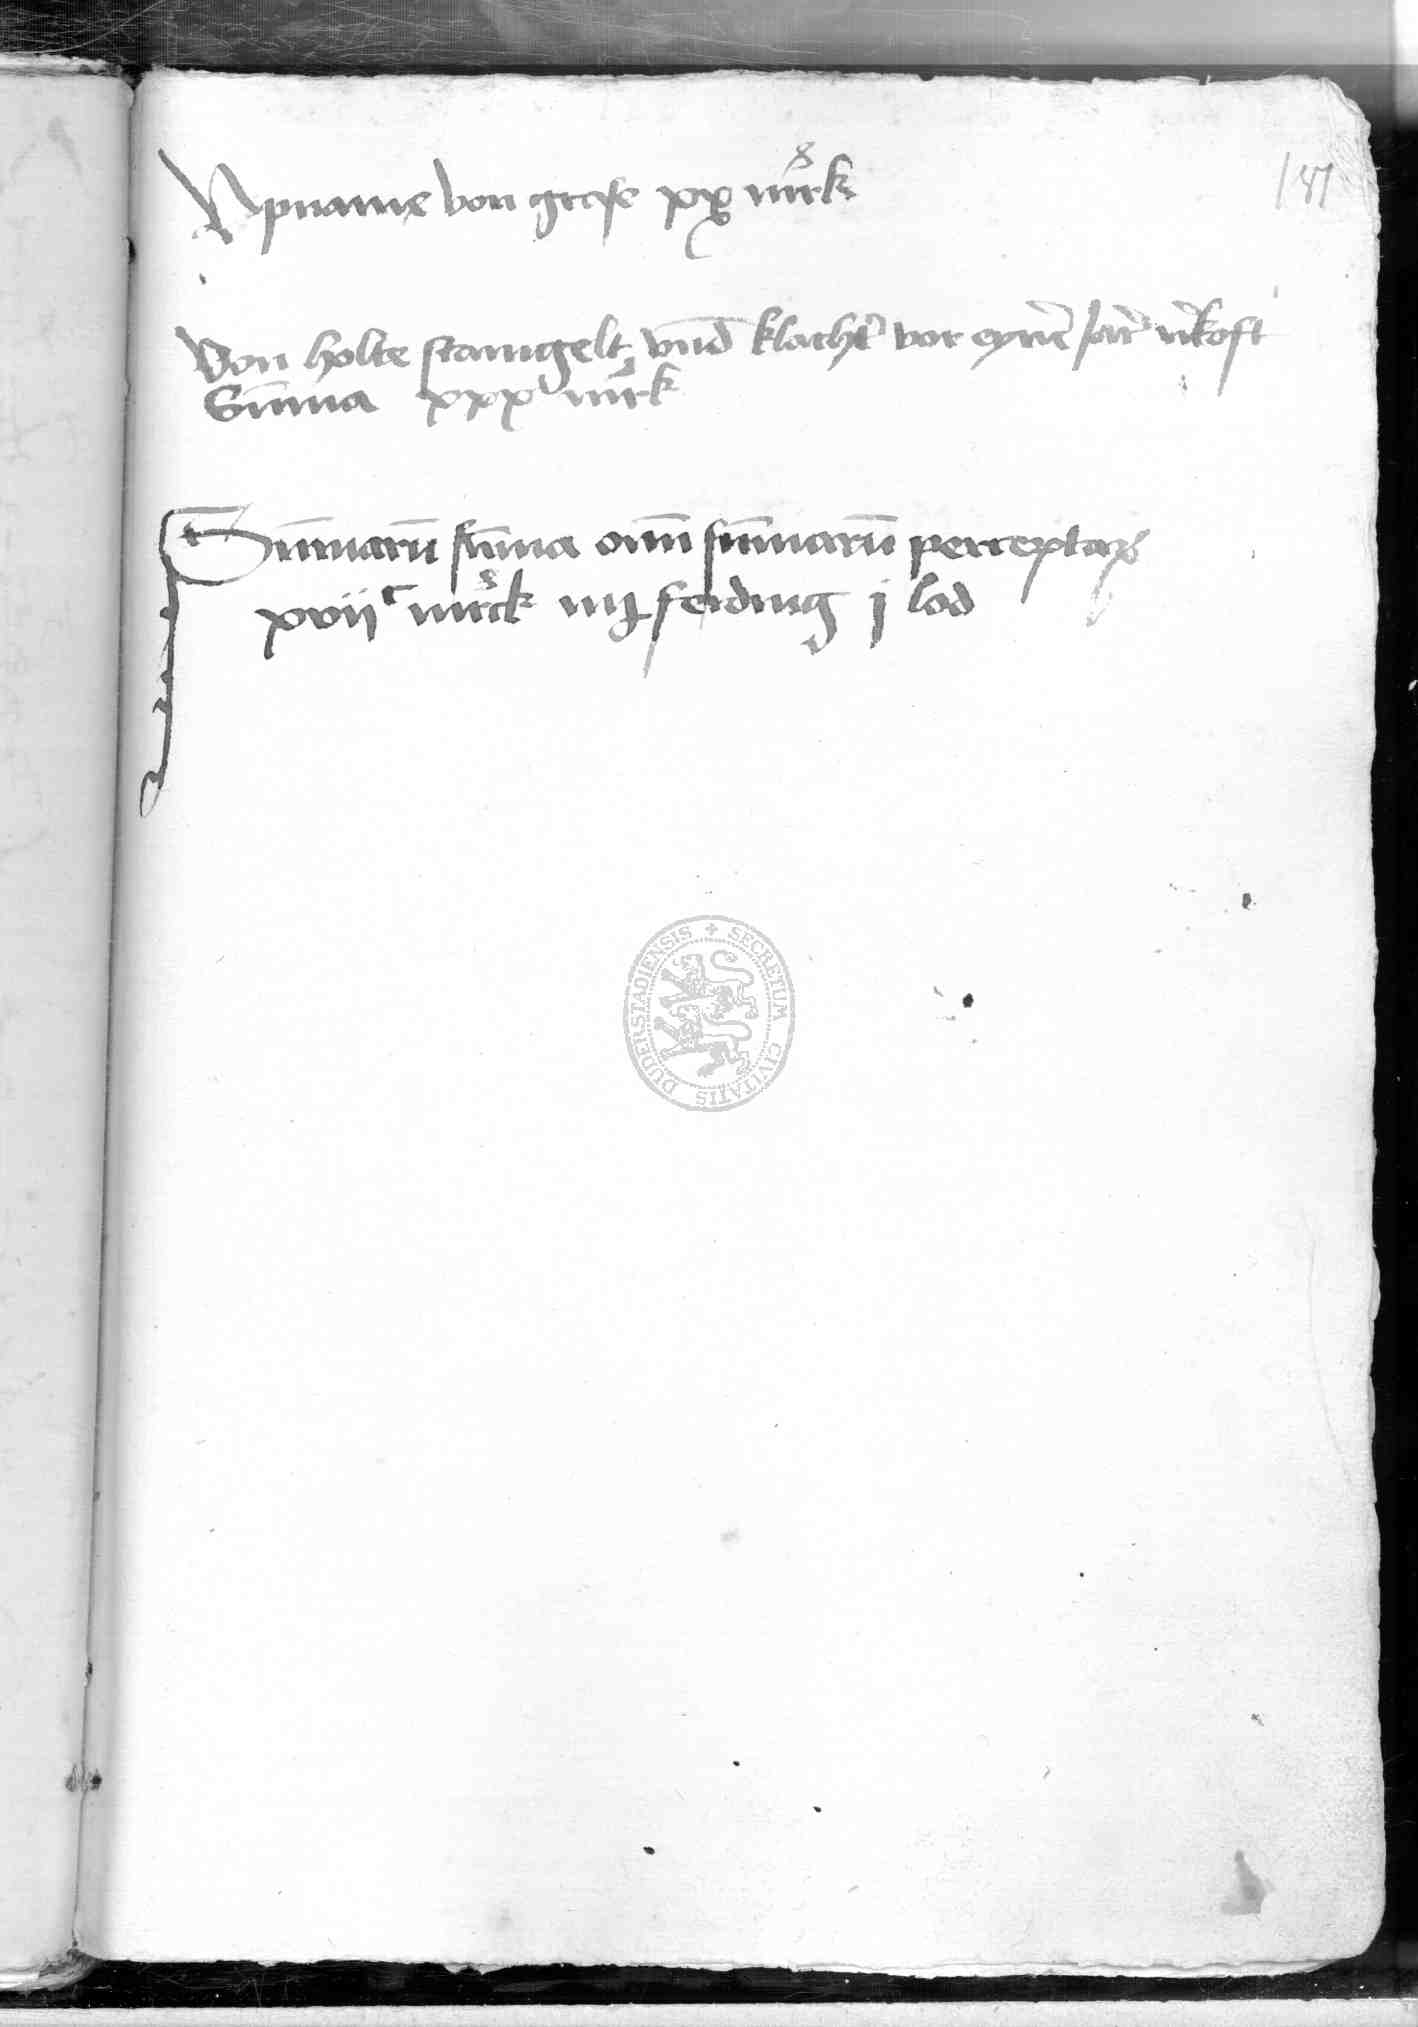 Upname von grase xx mrk
Von holte stamgelt vnd klacht vor eyne jar vkoft
Suma xxx mrk
Sumaru suma oim sumaru perceptaꝝ
xviiᶜ mrck iiij ferding j lod
DUDERSTADIENSIS + SECRETUM CIVITATIS